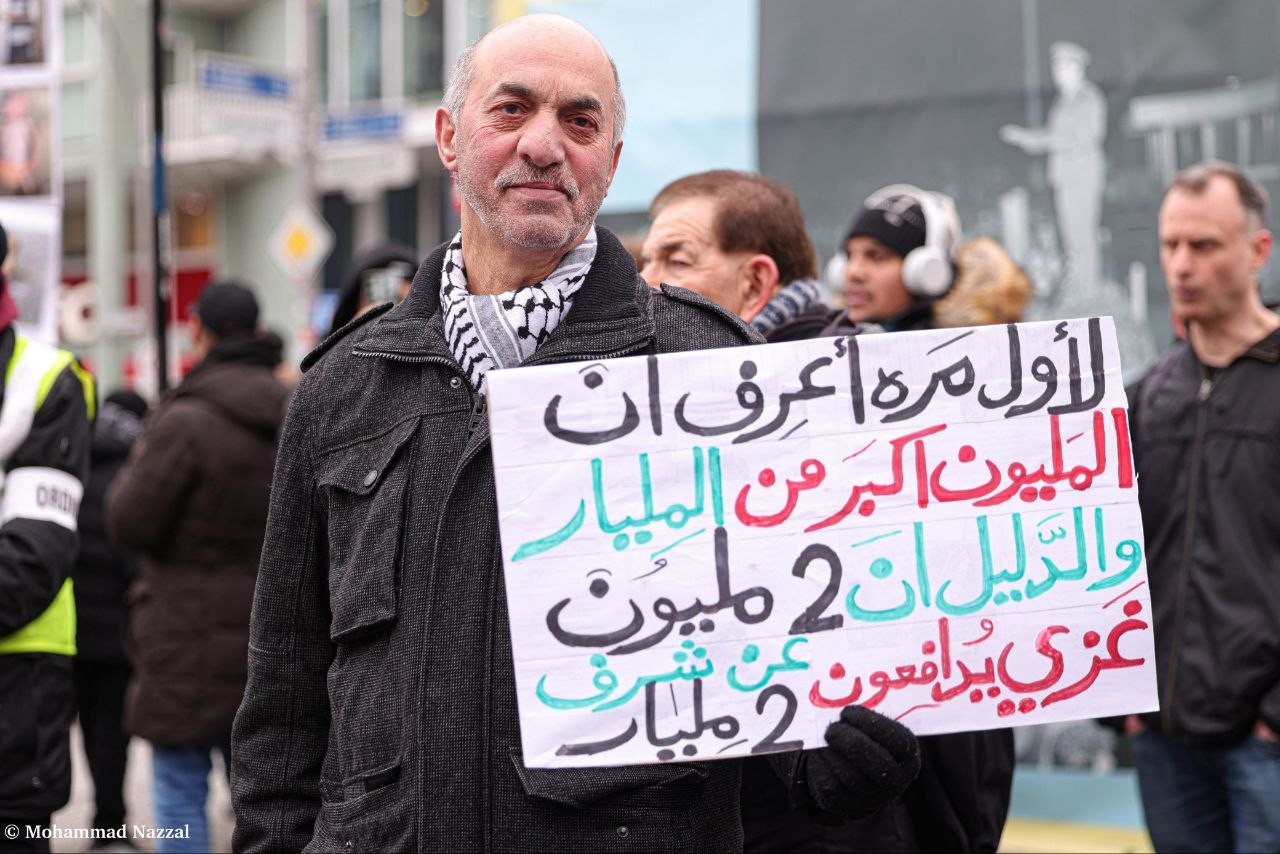 لأول مَره أعرِف انَّ
المَليون اكبَر مِن المِليار
والدَّليل انَّ 2 مليُونَ
غَزي يُدافعون عَن شَرف
2 مِليار
© Mohammad Nazzal